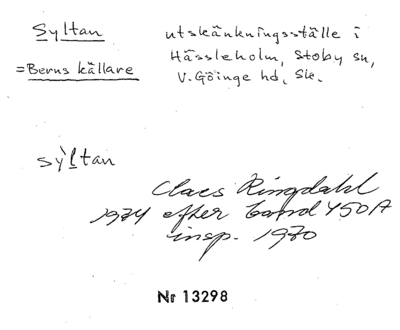 Syltan utskänkningsställe i
Hässleholm, Stoby sn,
=Berns källare V. Göinge hd, Sk.
sỳltan
Claes Ringdahl
1974 efter band 450A
insp. 1970
Nr 13298